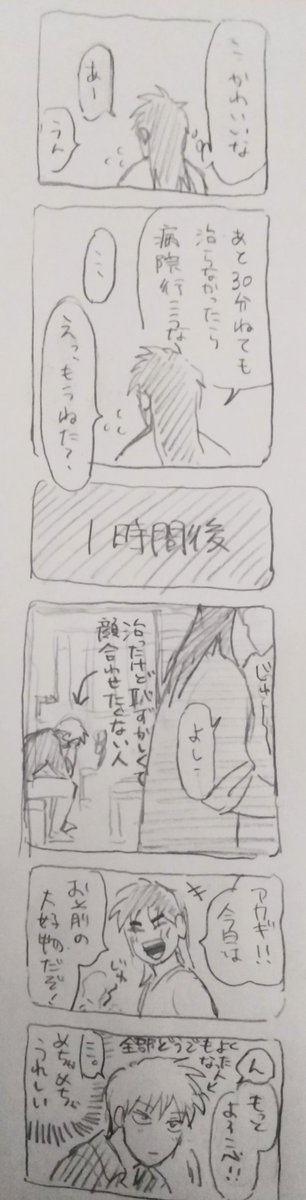 …かわいいな
あー
うん
あと30分ねても
治らなかったら
病院行こうな
…
えっ、もうねた?
1時間後
じゅー
よしー
治ったけど恥ずかしくて
顔合わせたくない人
アカギ!!
今日は
お前の
大好物だぞ!
じゅー
ん
もっと
よろこべ!!
全部どうでもよく
なった人
…。
めちゃめちゃ
うれしい